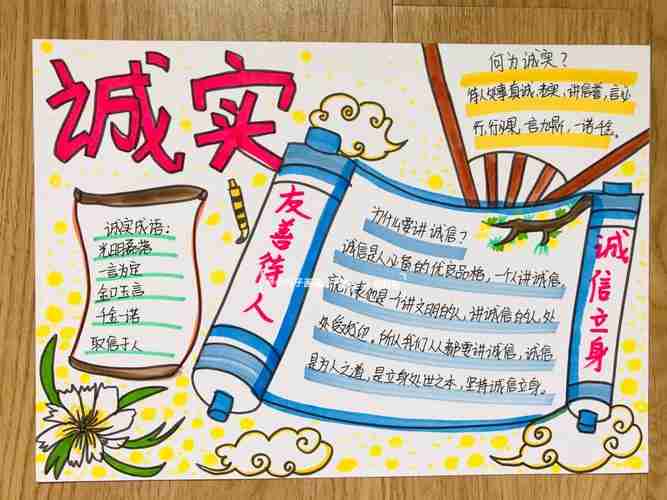 诚实
何为诚实？
待人处事真诚、老实，讲信誉，言必
行，行必果，一言九鼎，一诺千金。
诚实成语：
光明磊落
一言为定
金口玉言
千金一诺
取信于人
友善待人
为什么要讲诚信？
诚信是人必备的优良品格，一个人讲诚信，
就代表他是一个讲文明的人，讲诚信的人，处
处受欢迎。所以我们人人都要讲诚信，诚信
是为人之道，是立身处世之本，坚持诚信立身。
诚信立身